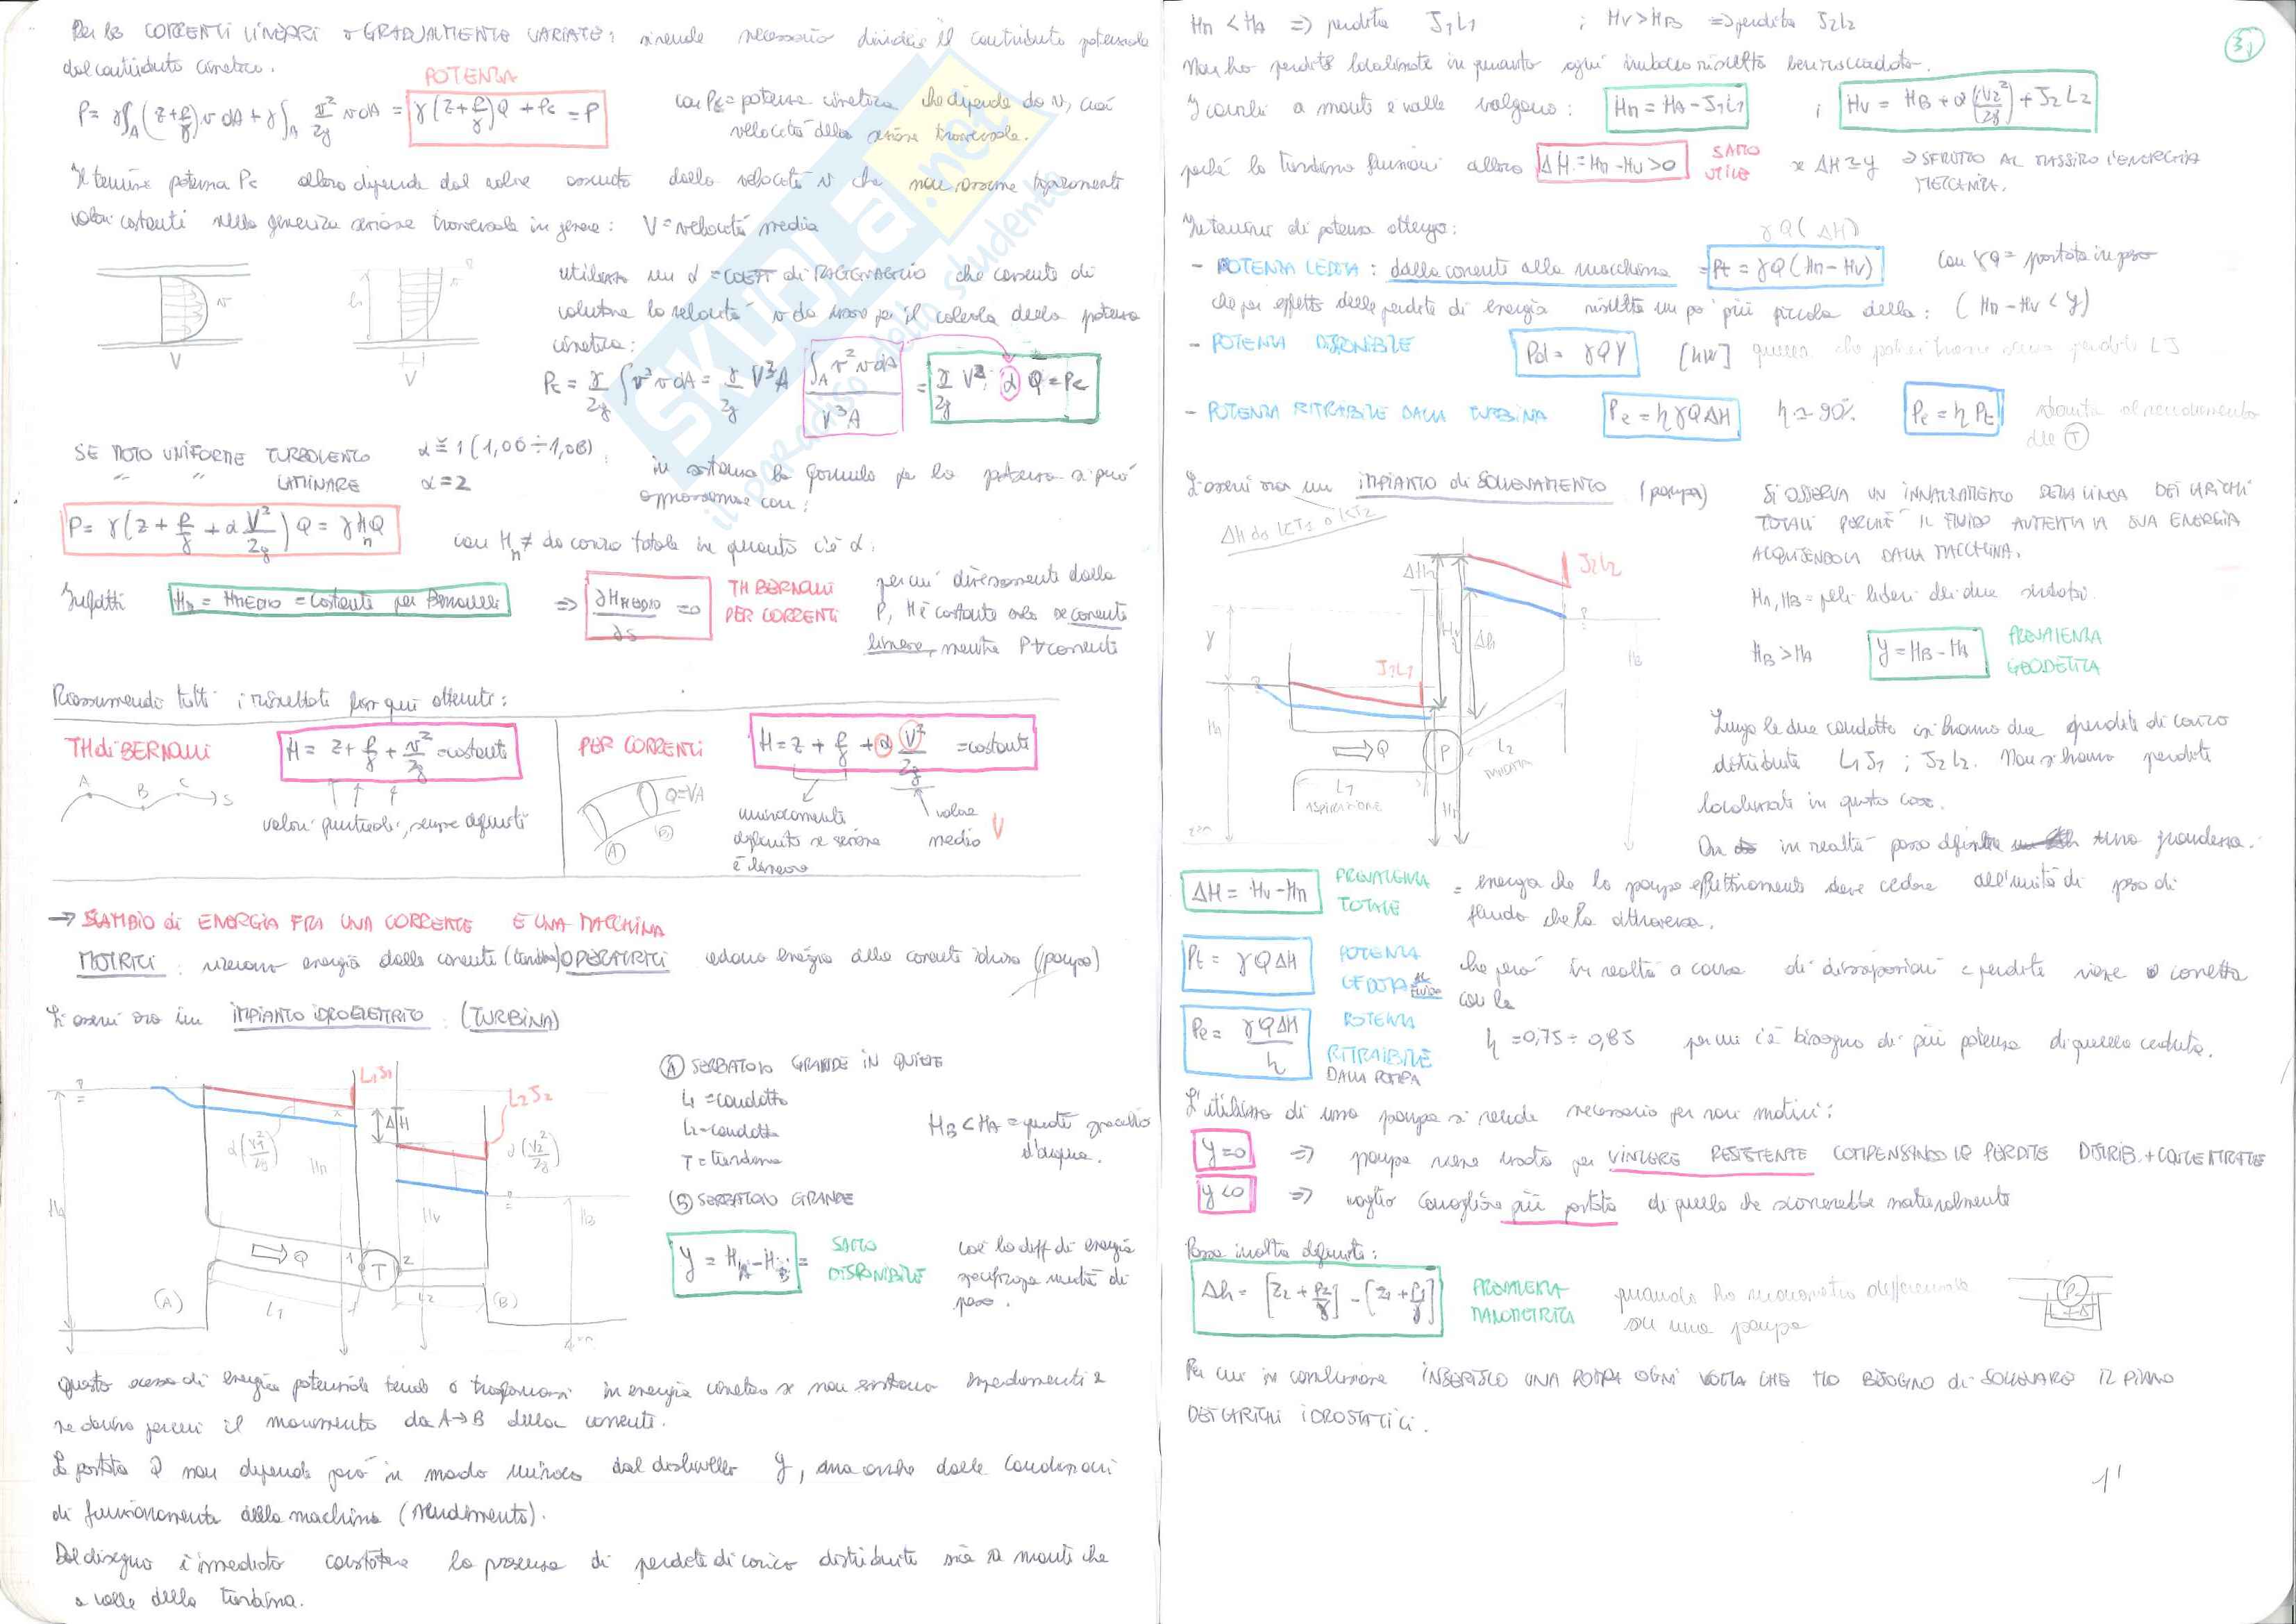 Per le CORRENTI LINEARI o GRADUALMENTE VARIATE: si rende necessario dividere il contributo potenziale
dal contributo cinetico.
POTENZA
P = γ∫A (z + p/γ) v dA + γ∫A v²/2g v dA = γ(z + p/γ)Q + Pc = P
con Pc = potenza cinetica che dipende da v, cioè
velocità della sezione trasversale.
Il termine potenza Pc allora dipende dal valore assunto dalla velocità v che non assume
valori costanti nella generica sezione trasversale in genere: V = velocità media
v
V
v
V
utilizzo un α = COEFF di RAGGUAGLIO che consente di
valutare la velocità v da usare per il calcolo della potenza
cinetica:
Pc = γ/2g ∫v² v dA = γ/2g V³A ∫A v² v dA / V³A = γ/2g V² α Q = Pc
SE MOTO UNIFORME TURBOLENTO α ≅ 1 (1,06 ÷ 1,08)
" " LAMINARE α = 2
in sostanza la formula per la potenza si può
approssimare con:
P = γ(z + p/γ + α V²/2g) Q = γ Hn Q
con Hn ≠ da carico totale in quanto c'è α.
Infatti Hn = HMEDIO = costante per Bernoulli ⇒ ∂HMEDIO/∂s = 0
TH BERNOULLI
PER CORRENTI
per cui diversamente dalla
P, H è costante solo se corrente
lineare, mentre P ∀ correnti
Riassumendo tutti i risultati fin qui ottenuti:
TH di BERNOULLI H = z + p/γ + v²/2g = costante
A B C s
valori puntuali, sempre definiti
PER CORRENTI H = z + p/γ + α V²/2g = costante
Q = VA
A B
univocamente
definito se sezione
è lineare
valore
medio V
→ SCAMBIO di ENERGIA FRA UNA CORRENTE E UNA MACCHINA
MOTRICI: ricevono energia dalla corrente (turbina) OPERATRICI cedono energia alla corrente idrica (pompa)
Si osservi ora un IMPIANTO IDROELETTRICO: (TURBINA)
L1J1
L2J2
ΔH
α(V1²/2g)
α(V2²/2g)
HA
Hm
Hv
HB
Q
1 T 2
L1
L2
(A)
(B)
(A) SERBATOIO GRANDE IN QUIETE
L1 = condotta
L2 = condotta
T = turbina
(B) SERBATOIO GRANDE
HB < HA = quota specchio
d'acqua.
y = HA - HB = SALTO
DISPONIBILE
cioè la diff di energia
specifica unità di
peso.
Questo eccesso di energia potenziale tende a trasformarsi in energia cinetica se non esistono impedimenti e
se danno perciò il movimento da A→B della corrente.
La portata Q non dipende però in modo univoco dal dislivello y, ma anche dalle condizioni
di funzionamento della macchina (rendimento).
Dal disegno è immediato constatare la presenza di perdite di carico distribuite sia a monte che
a valle della turbina.
3)
Hm < HA ⇒ perdita J1L1 ; Hv > HB ⇒ perdita J2L2
Non ho perdite localizzate in quanto ogni imbocco risulta ben raccordato.
I carichi a monte e valle valgono: Hm = HA - J1L1 ; Hv = HB + α(V2²/2g) + J2L2
perché la turbina funzioni allora ΔH = Hm - Hv > 0 SALTO
UTILE
se ΔH ≅ y ⇒ SFRUTTO AL MASSIMO L'ENERGIA
MECCANICA.
In termini di potenza ottengo:
γQ(ΔH)
- POTENZA CEDUTA: dalla corrente alla macchina = Pt = γQ(Hm - Hv) con γQ = portata in peso
che per effetto delle perdite di energia risulta un po' più piccola della: (Hm - Hv < y)
- POTENZA DISPONIBILE Pd = γQy [kW] quella che potrei trarre senza perdite LJ
- POTENZA RITRAIBILE DALLA TURBINA Pe = η γQΔH η ≃ 90% Pe = η Pt dovuta al rendimento
della (T)
Si osservi ora un IMPIANTO di SOLLEVAMENTO (pompa)
Δh da LCT1 a LCT2
SI OSSERVA UN INNALZAMENTO DELLA LINEA DEI CARICHI
TOTALI PERCHÉ IL FLUIDO AUMENTA LA SUA ENERGIA
ACQUISENDOLA DALLA MACCHINA.
HA, HB = peli liberi dei due serbatoi.
HB > HA y = HB - HA PREVALENZA
GEODETICA
ΔH
J2L2
Hv
Δh
y
J1L1
HA
HB
Q
P
L2
MANDATA
L1
ASPIRAZIONE
Lungo le due condotte si hanno due perdite di carico
distribuite L1J1 ; J2L2. Non si hanno perdite
localizzate in questo caso.
Ora in realtà posso definire una grandezza.
ΔH = Hv - Hm PREVALENZA
TOTALE
= energia che la pompa effettivamente deve cedere all'unità di peso di
fluido che la attraversa.
Pt = γQΔH POTENZA
CEDUTA AL FLUIDO
che però in realtà a causa di dissipazioni e perdite viene corretta
con la
Pe = γQΔH/η POTENZA
RITRAIBILE
DALLA POMPA
η = 0,75 ÷ 0,85 per cui c'è bisogno di più potenza di quella ceduta.
L'utilizzo di una pompa si rende necessario per vari motivi:
y = 0 ⇒ pompa viene usata per VINCERE RESISTENZE COMPENSANDO LE PERDITE DISTRIB. + CONCENTRATE
y < 0 ⇒ voglio convogliare più portata di quella che scorrerebbe naturalmente
Posso inoltre definire:
Δh = [z2 + p2/γ] - [z1 + p1/γ] PREVALENZA
MANOMETRICA
quando ho manometro differenziale
su una pompa
P
Δ
Per cui in conclusione INSERISCO UNA POMPA OGNI VOLTA CHE HO BISOGNO di SOLLEVARE IL PIANO
DEI CARICHI IDROSTATICI.
1'
SKUOLA.net
il paradiso dello studente